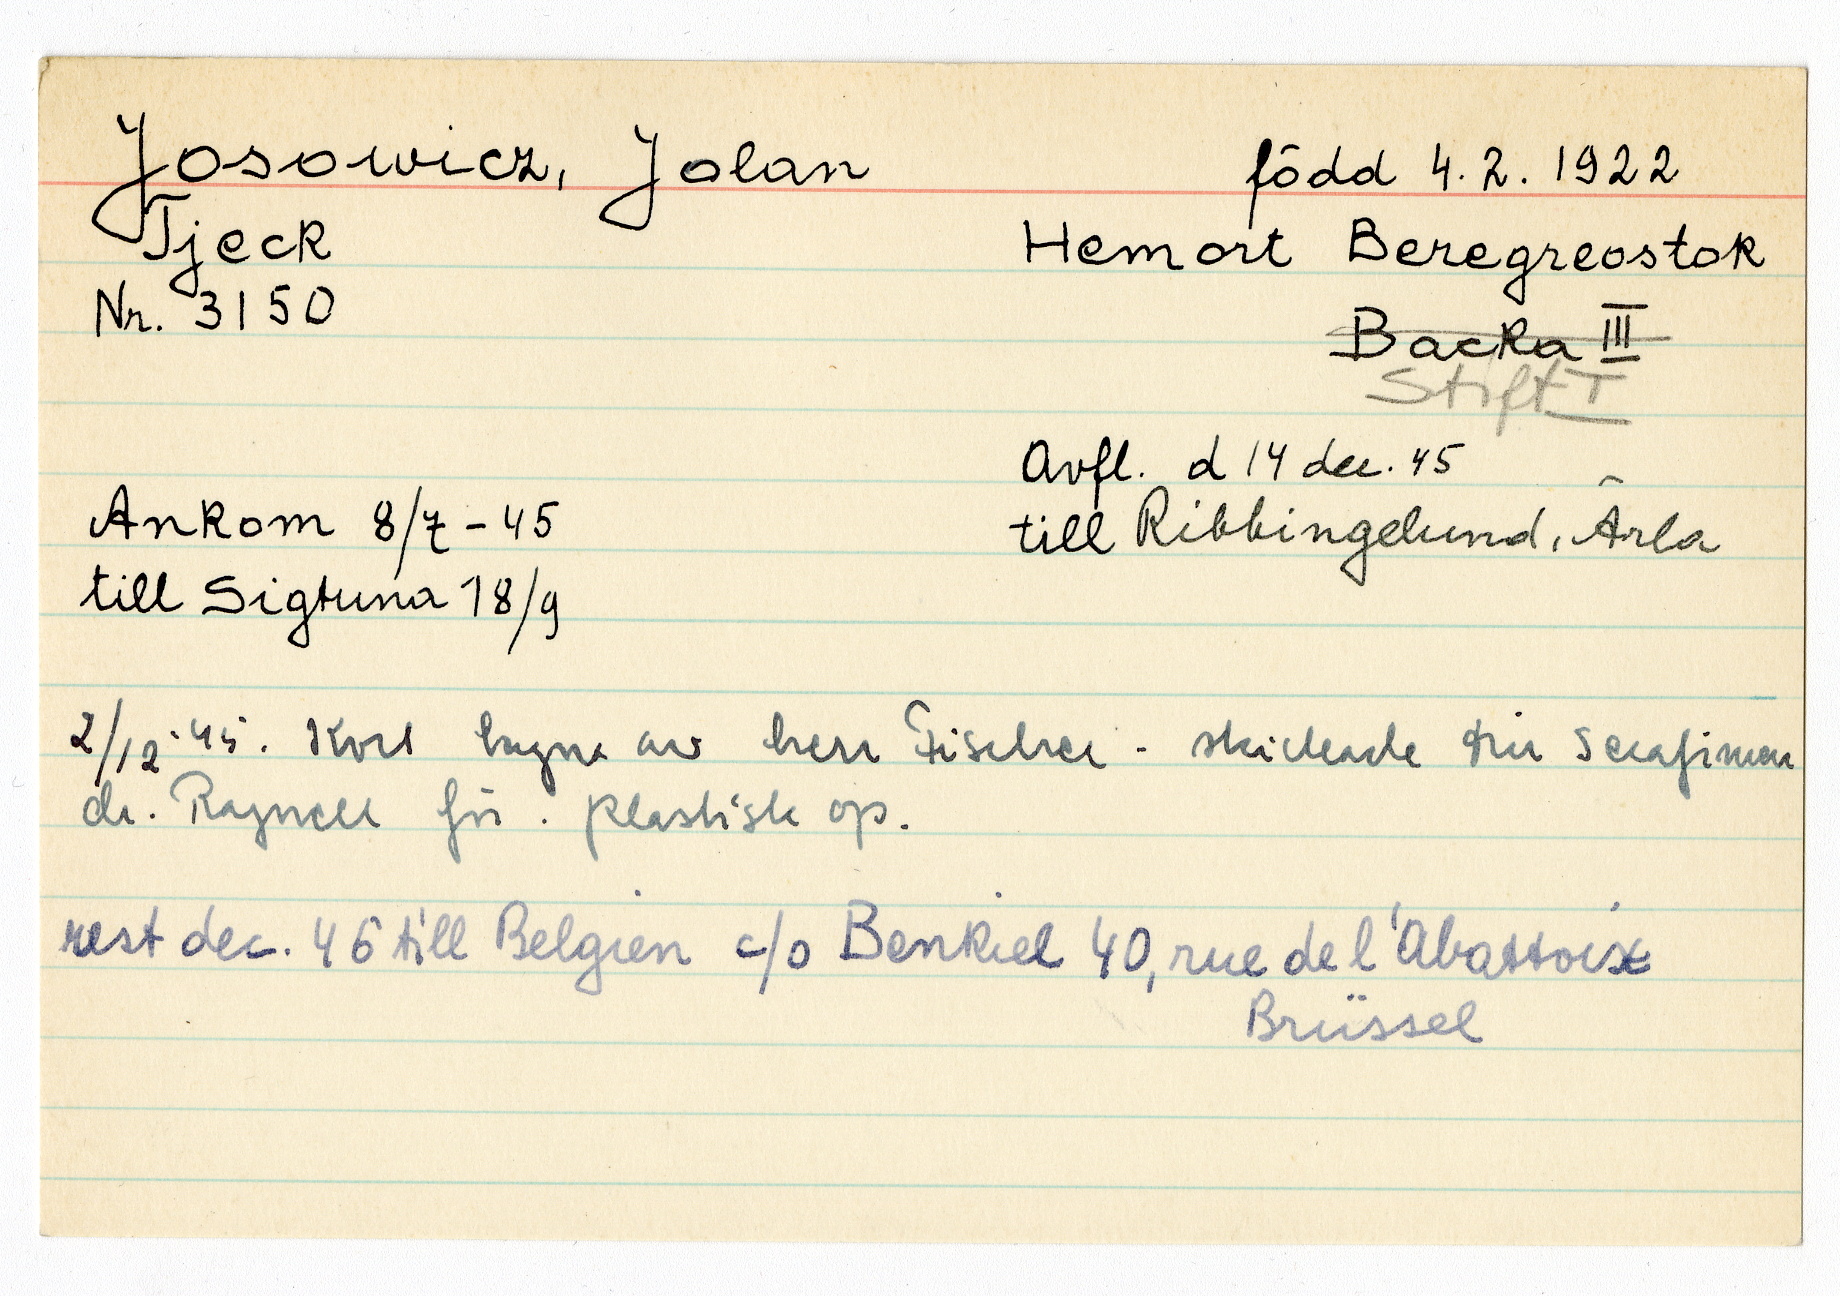 Josowicz, Jolan född 4.2. 1922
Tjeck Hemort Beregreostok
Nr. 3150
Backa III
Stift I
Avfl. d 14 dec. 45
Ankom 8/7-45 till Ribbingelund, Ärla
till Sigtuna 18/9
2/12 45. Kort av herr Fischer - skickade till Serafimer
dr. Ragnell för plastisk op.
rest dec. 46 till Belgien c/o Benkiel 40, rue de l'Abattoix
Brüssel